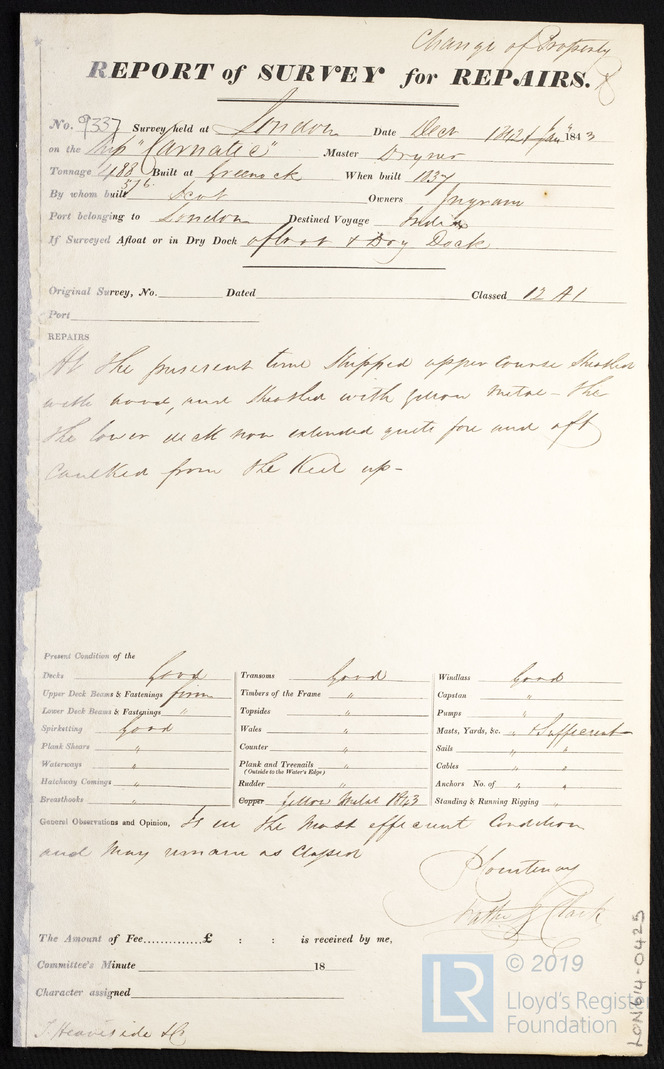 Change of Property
REPORT of SURVEY for REPAIRS.
No. 9337 Survey held at London Date Decr 1842 & Jany 1843
on the Ship "Carnatic" Master Dryner
Tonnage 488 Built at Greenock When built 1837
576
By whom built Scot Owners Ingram
Port belonging to London Destined Voyage India
If Surveyed Afloat or in Dry Dock afloat & Dry Dock
Original Survey, No. Dated Classed 12 A1
Port
REPAIRS
At the present time stripped upper course sheathed
with wood, and sheathed with yellow metal - the
the lower deck now extended quite fore and aft
caulked from the Keel up -
Present Condition of the
Decks Good Transoms Good Windlass Good
Upper Deck Beams & Fastenings firm Timbers of the Frame " Capstan "
Lower Deck Beams & Fastenings " Topsides " Pumps "
Spirketting Good Wales " Masts, Yards, &c. " & Sufficient
Plank Shears " Counter " Sails " "
Waterways " Plank and Treenails " Cables " "
(Outside to the Water's Edge)
Hatchway Comings " Rudder " Anchors No. of " "
Breasthooks " Copper Yellow Metal 1843 Standing & Running Rigging "
General Observations and Opinion, Is in the most efficient Condition
and may remain as Classed
P Courtenay
Nathl J Clark
The Amount of Fee..............£ : : is received by me,
Committee's Minute 18
Character assigned
J. Heaviside & Co
LON614-0425
LR
© 2019
Lloyd's Register
Foundation